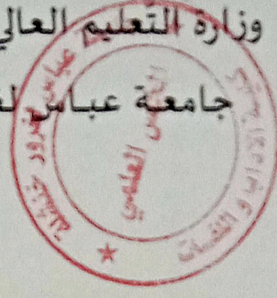 وزارة التعليم العالي
جامعة عباس لغ
جامعة عباس لغرور خنشلة
كلية الآداب و اللغات
المجلس العلمي